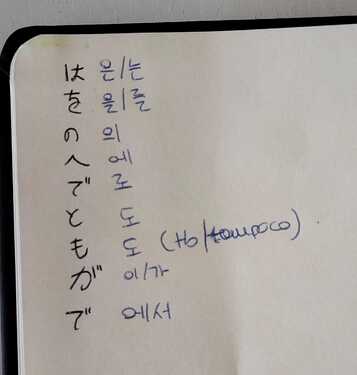 は 은/는
を 을/를
の 의
へ 에
で 로
と 도
も 도 (también/tampoco)
が 이/가
で 에서